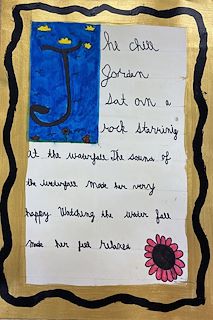 J he chill
Jordan
sat own a
rock starring
at the waterfall The sound of
the waterfall made her very
happy Watching the water fall
made her feel relaxed